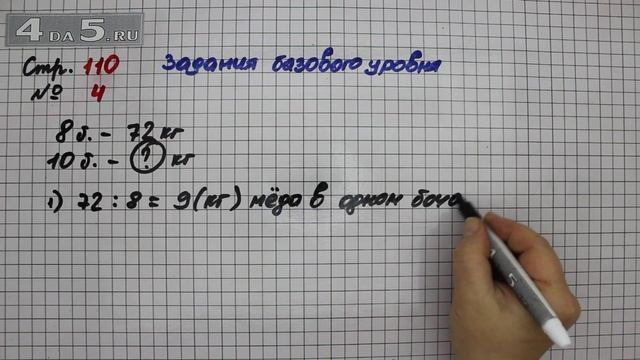 4 DA 5.RU
Стр. 110 Задания базового уровня
№ 4
8 б. – 72 кг
10 б. – ? кг
1) 72 : 8 = 9 (кг) мёда в одном бочо